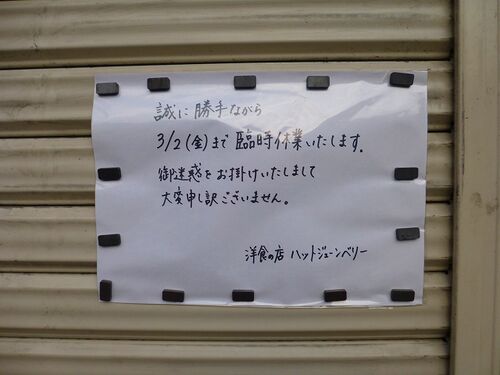 誠に勝手ながら
3/2(金)まで臨時休業いたします。
御迷惑をお掛けいたしまして
大変申し訳ございません。
洋食の店 ハットジューンベリー